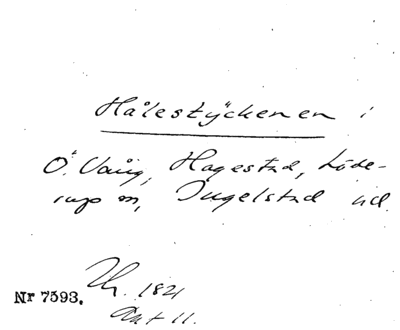 Hålestÿckenen i
Ö. Vång, Hagestad, Löde-
rup sn, Ingelstad hd.
Nr 7593.
Th. 1821
Akt 11.